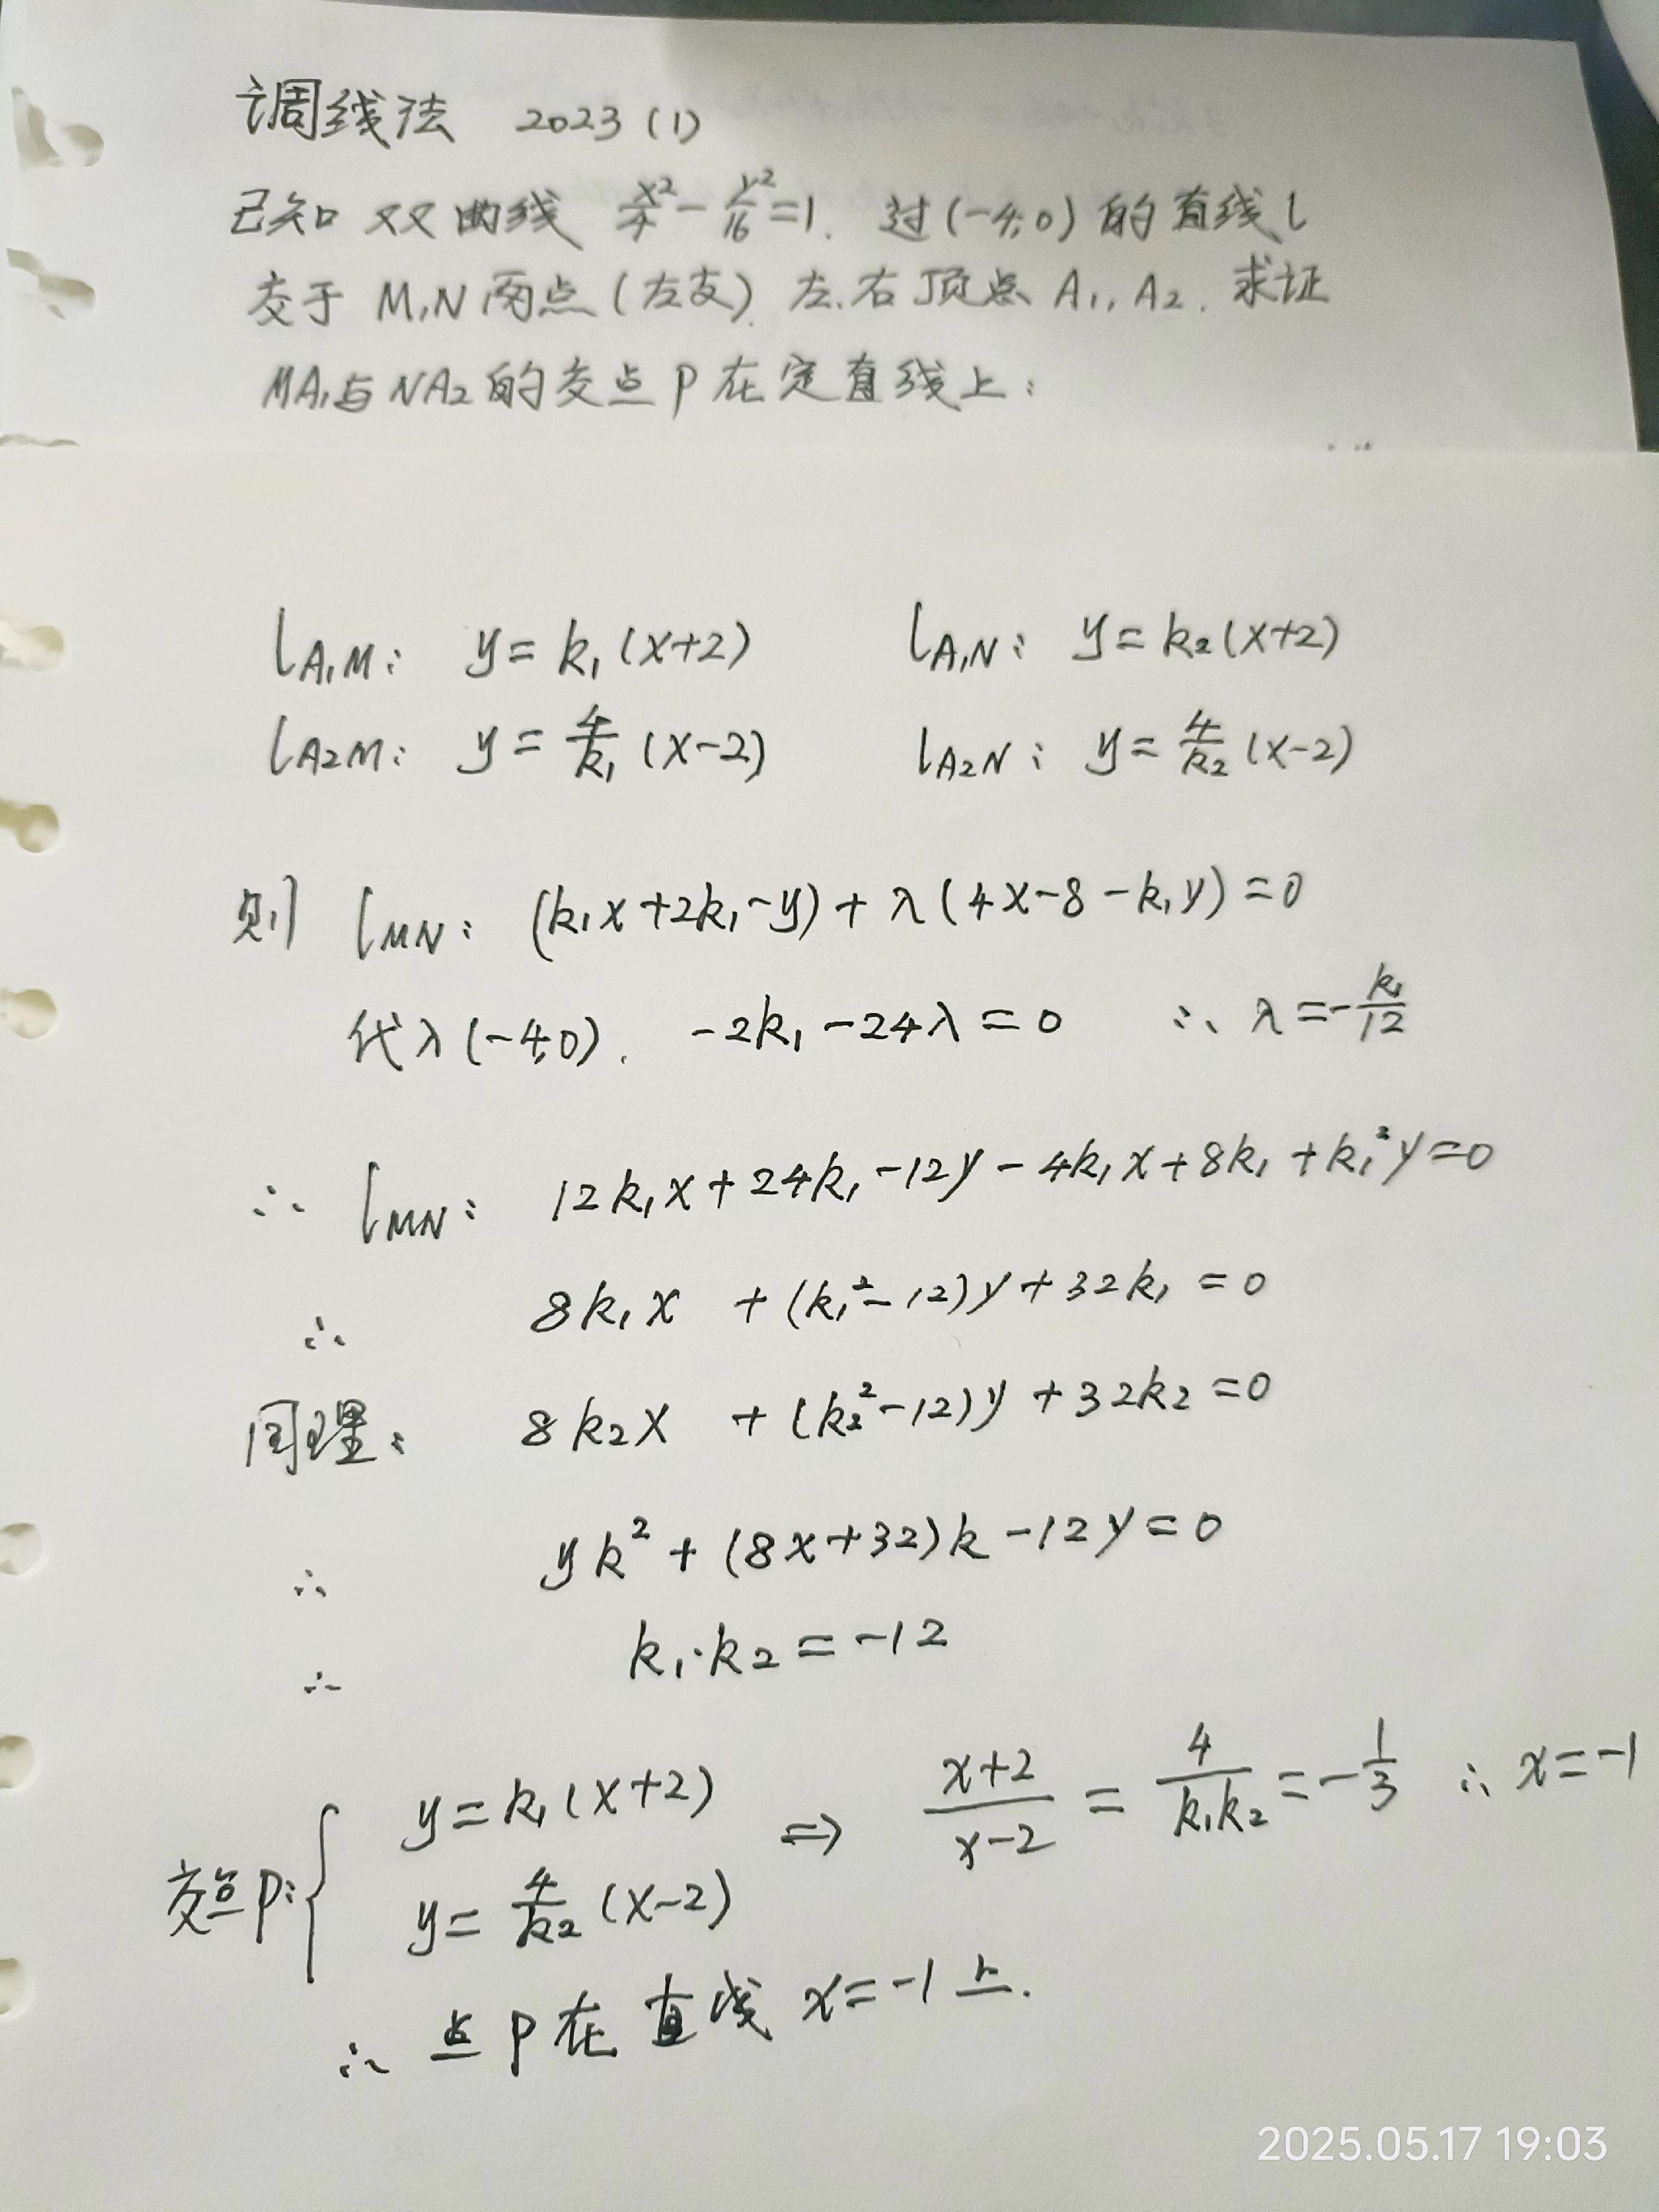 调线法 2023 (1)
已知双曲线 x²/4 - y²/16 = 1. 过(-4,0)的直线l
交于M,N两点(左支). 左.右顶点A₁, A₂. 求证
MA₁与NA₂的交点P在定直线上:
l_{A₁M}: y = k₁(x+2) l_{A₁N}: y = k₂(x+2)
l_{A₂M}: y = 4/k₁ (x-2) l_{A₂N}: y = 4/k₂ (x-2)
则 l_{MN}: (k₁x+2k₁-y) + λ(4x-8-k₁y) = 0
代入(-4,0). -2k₁-24λ = 0 ∴ λ = -k₁/12
∴ l_{MN}: 12k₁x+24k₁-12y-4k₁x+8k₁+k₁²y=0
∴ 8k₁x + (k₁²-12)y + 32k₁ = 0
同理: 8k₂x + (k₂²-12)y + 32k₂ = 0
∴ yk² + (8x+32)k - 12y = 0
∴ k₁·k₂ = -12
交点P: { y = k₁(x+2) ⇒ (x+2)/(x-2) = 4/(k₁k₂) = -1/3 ∴ x = -1
y = 4/k₂ (x-2)
∴ 点P在直线 x=-1上.
2025.05.17 19:03